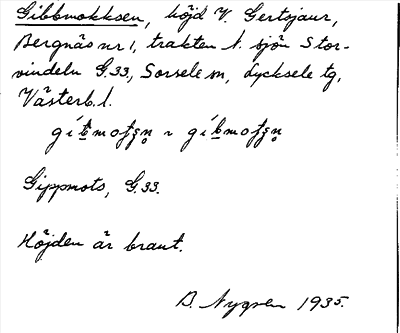 Gibbmokksen, höjd V. Gertsjaur,
Bergnäs nr 1, trakten f. sjön Stor-
vindeln G.33, Sorsele sn, Lycksele tg,
Västerb. l.
Gippmots, G.33.
Höjden är brant.
B. Nygren 1935.